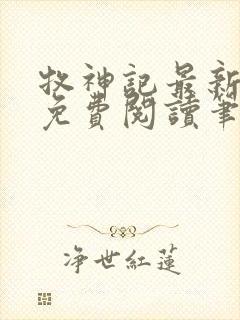 牧神記最新
免費閱讀筆
净世紅蓮